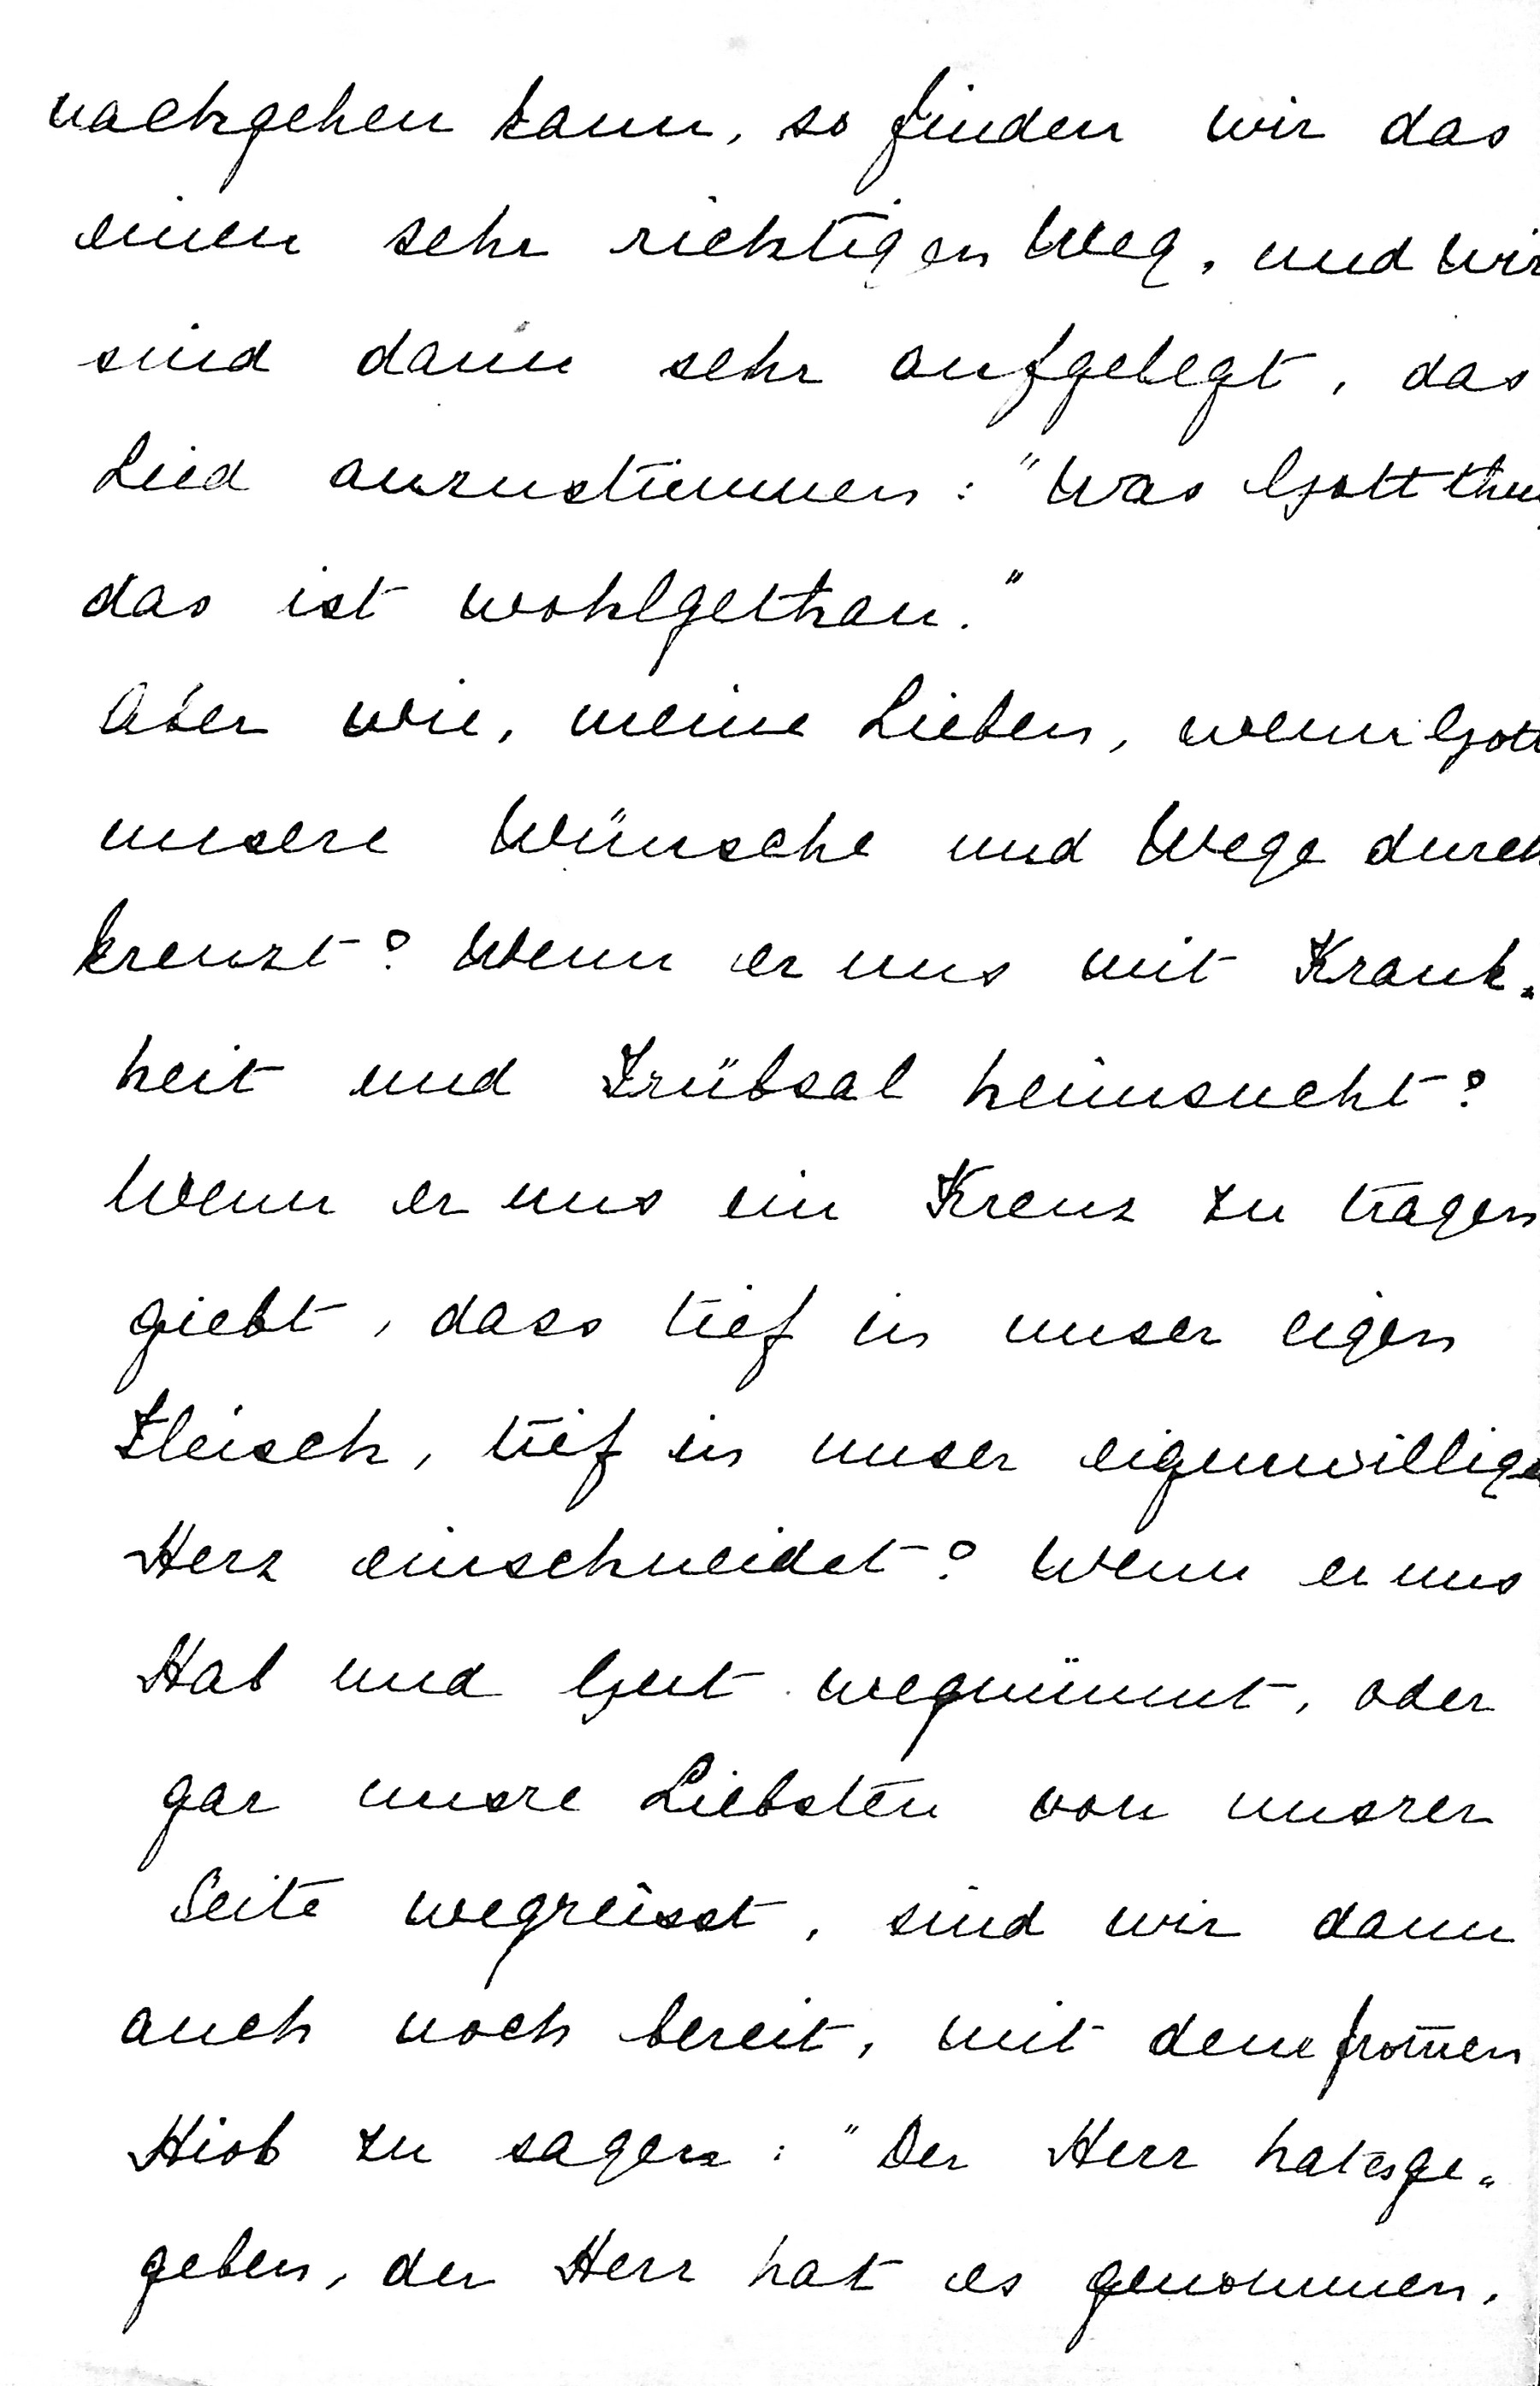 nachgehen kann, so finden wir das
einen sehr richtigen Weg, und wir
sind dann sehr aufgelegt, das
Lied anzustimmen: "Was Gott thut
das ist wohlgethan."
Aber wie, meine Lieben, wenn Gott
unsere Wünsche und Wege durch
kreuzt? Wenn er uns mit Krank-
heit und Trübsal heimsucht?
Wenn er uns ein Kreuz zu tragen
giebt, dass tief in unser eigen
Fleisch, tief in unser eigenwilliges
Herz einschneidet? Wenn er uns
Hab und Gut wegnimmt, oder
gar unsre Liebsten von unsrer
Seite wegreisst, sind wir dann
auch noch bereit, mit dem from̅en
Hiob zu sagen: "Der Herr hat es ge-
geben, der Herr hat es genommen,